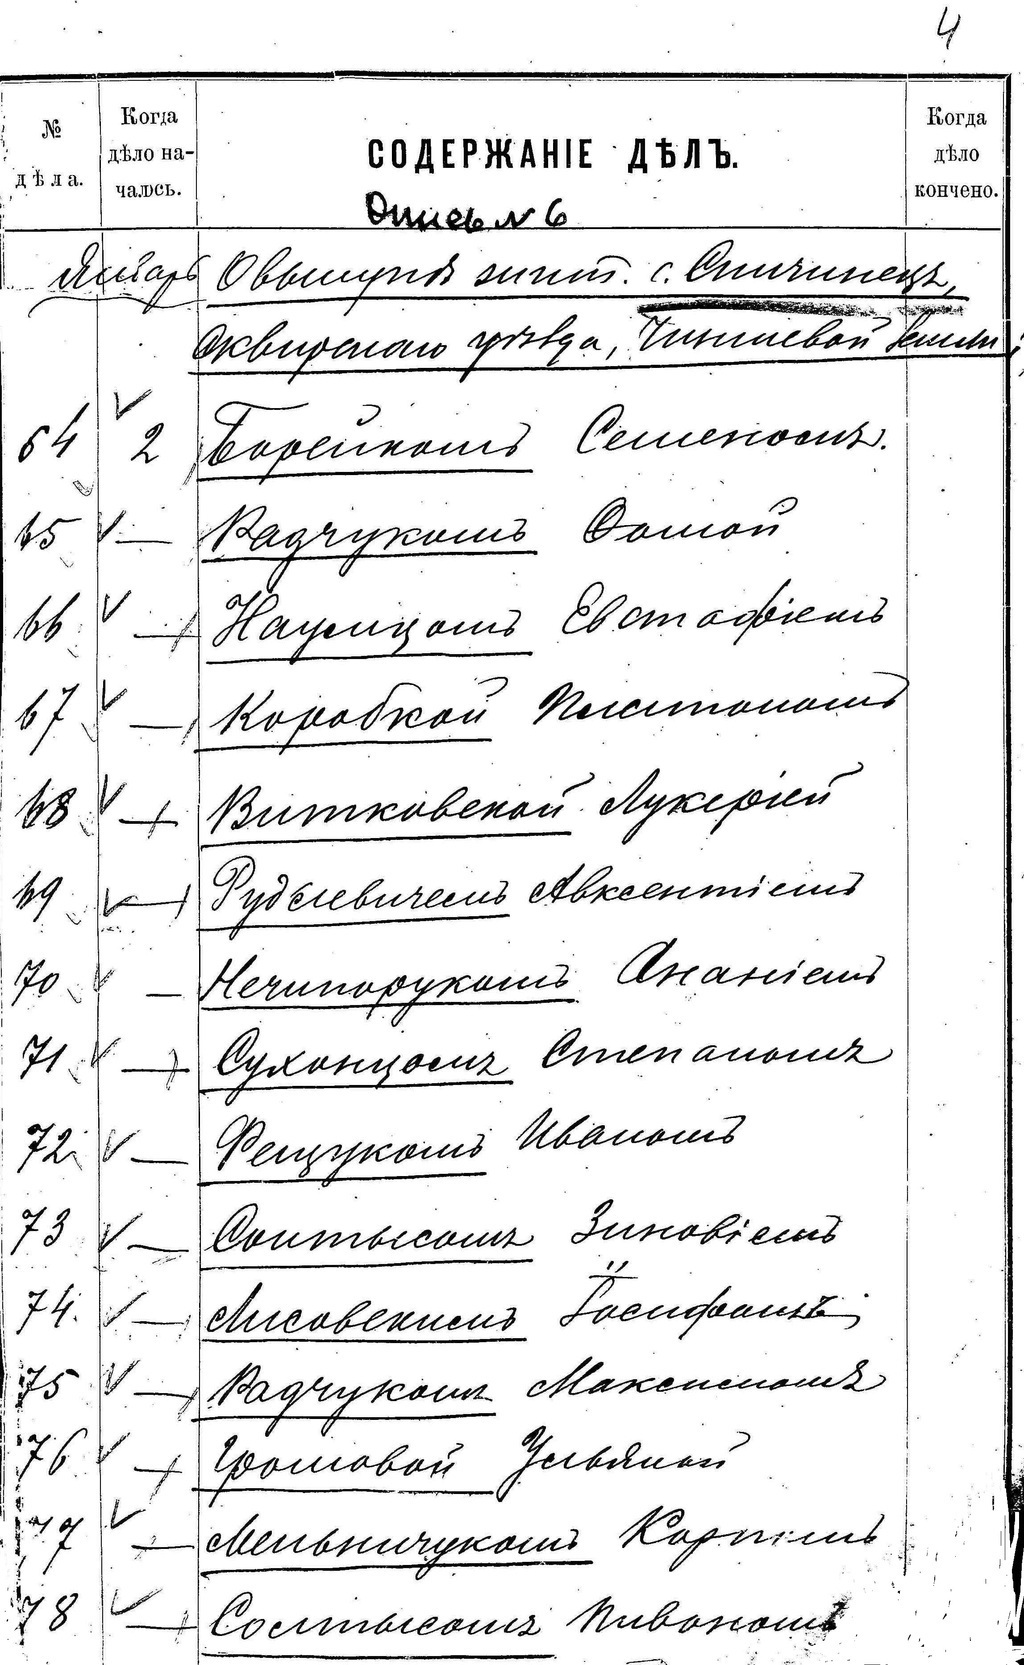 4
№ дѣла.
Когда дѣло началось.
СОДЕРЖАНІЕ ДѢЛЪ.
Когда дѣло кончено.
Опись № 6
Январь О выкупѣ чинш. с. Спичинецъ,
Сквирскаго уѣзда, Чиншевой земли:
64 2 Борейкомъ Семеномъ.
65 — Радчукомъ Фомой
66 — Наумцомъ Евстафіемъ
67 — Коробкой Платономъ
68 — Витковской Лукеріей
69 — Рудкевичемъ Авксентіемъ
70 — Нечипорукомъ Ананіемъ
71 — Сухонцомъ Степаномъ
72 — Фещукомъ Иваномъ
73 — Солтысомъ Зиновіемъ
74. — Лисовскимъ Іосифомъ
75 — Радчукомъ Максимомъ
76 — Громовой Ульяной
77 — Мельничукомъ Карпомъ
78 — Солтысомъ